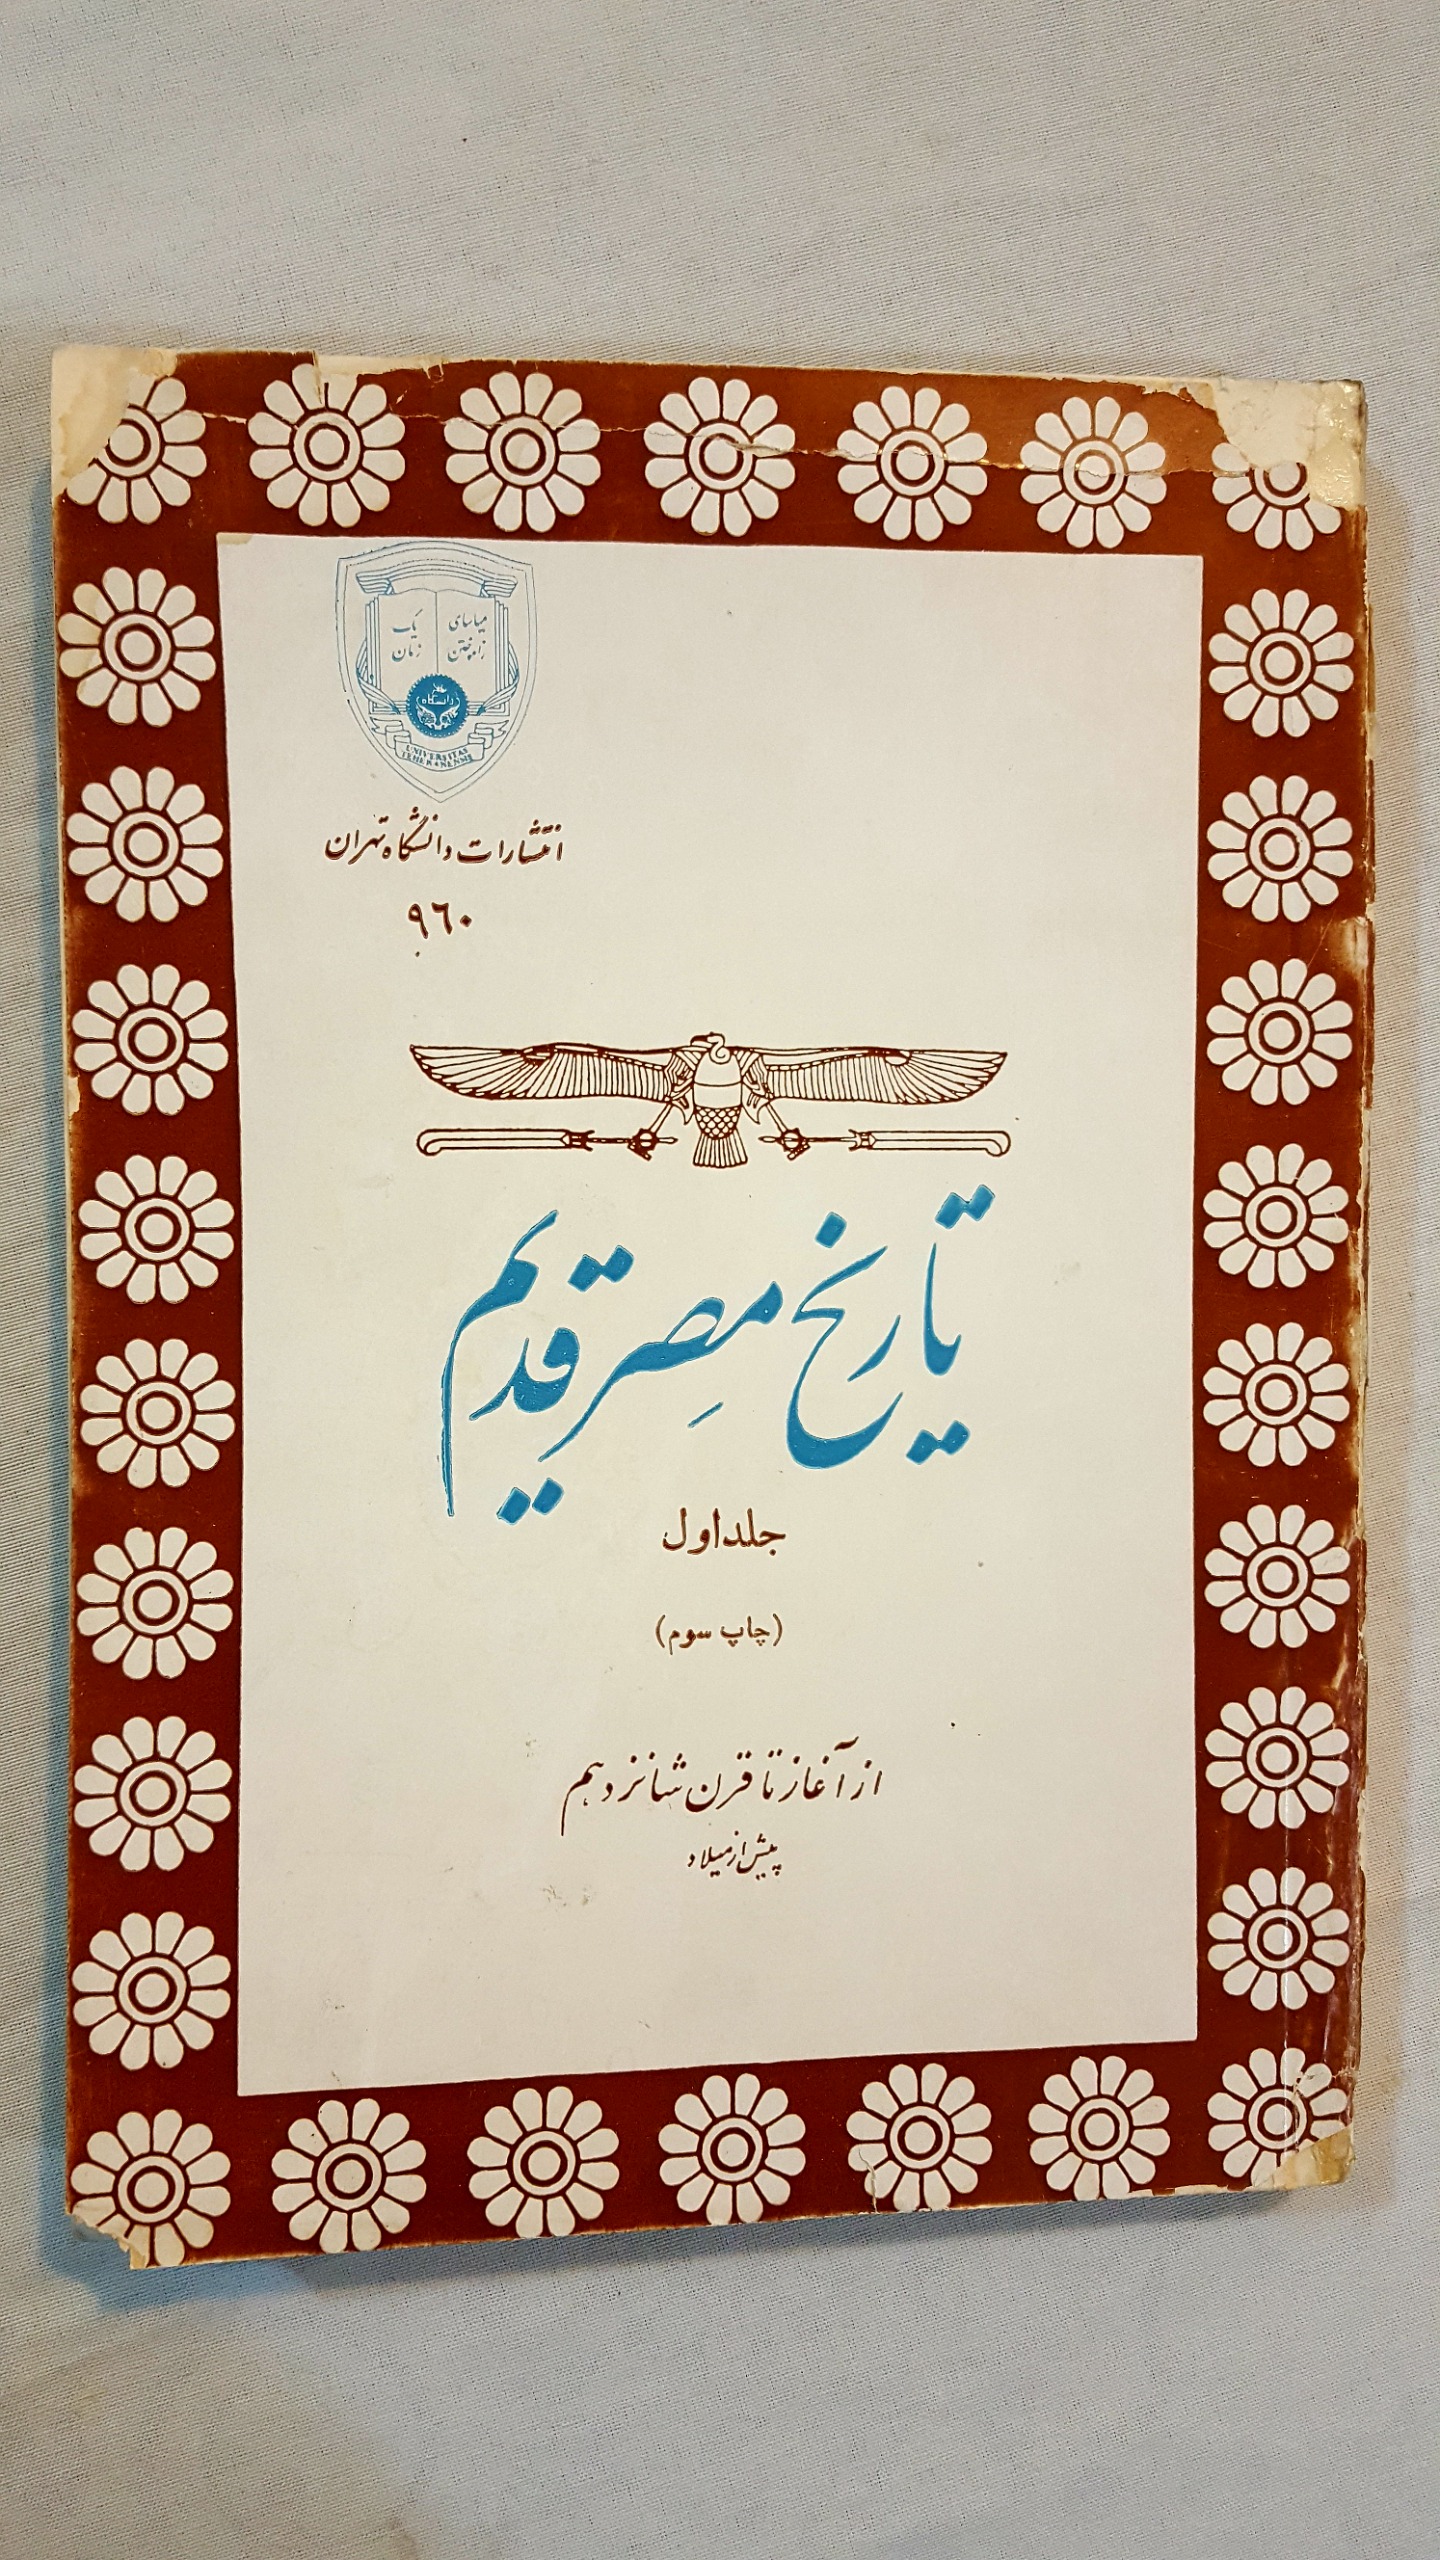 میاسای ز آموختن یک زمان
دانشگاه
UNIVERSITAS
TEHERANENSIS
انتشارات دانشگاه تهران
۹٦۰
تاریخ مصِر قدیم
جلد اول
(چاپ سوم)
از آغاز تا قرن شانزدهم
پیش از میلاد